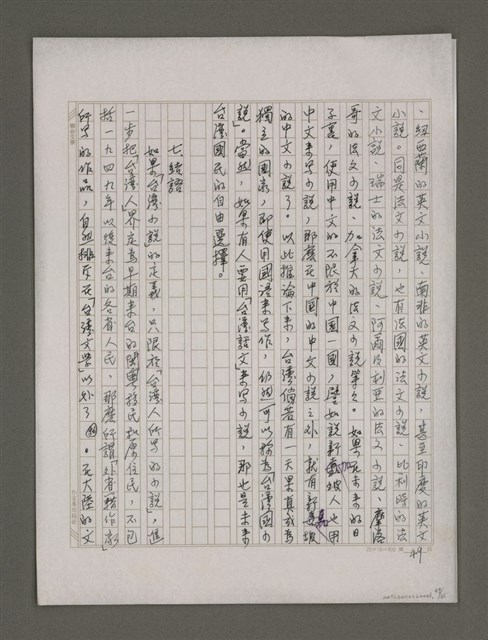 、紐西蘭的英文小説、南非的英文小説，甚至印度的英文
小説。同是法文小説，也有法國的法文小説、比利時的法
文小説、瑞士的法文小説、阿爾及利亞的法文小説、摩洛
哥的法文小説、加拿大的法文小説等々。如果在未來的日
子裏，使用中文的不限於中國一國，譬如説新嘉坡人也用
中文來寫小説，那麼在中国的中文小説之外，就有新嘉坡
的中文小説了。以此推論下來，台湾倘若有一天果真成為
獨立的國家，即使用國語來寫作，仍然可以稱為「台湾國小
説」。當然，如果有人要用「台湾話文」來寫小説，那也是未來
台湾國民的自由選擇。
七結語
如果「台湾小説」的定義，只限於「台湾人所寫的小説」，進
一步把「台湾人」界定為早期來台的閩粵移民和原住民，不包
括一九四九年以後來台的各省人民，那麼所謂「外省籍作家」
所写的作品，自然排斥在「台湾文學」以外了。在大陸的文
49